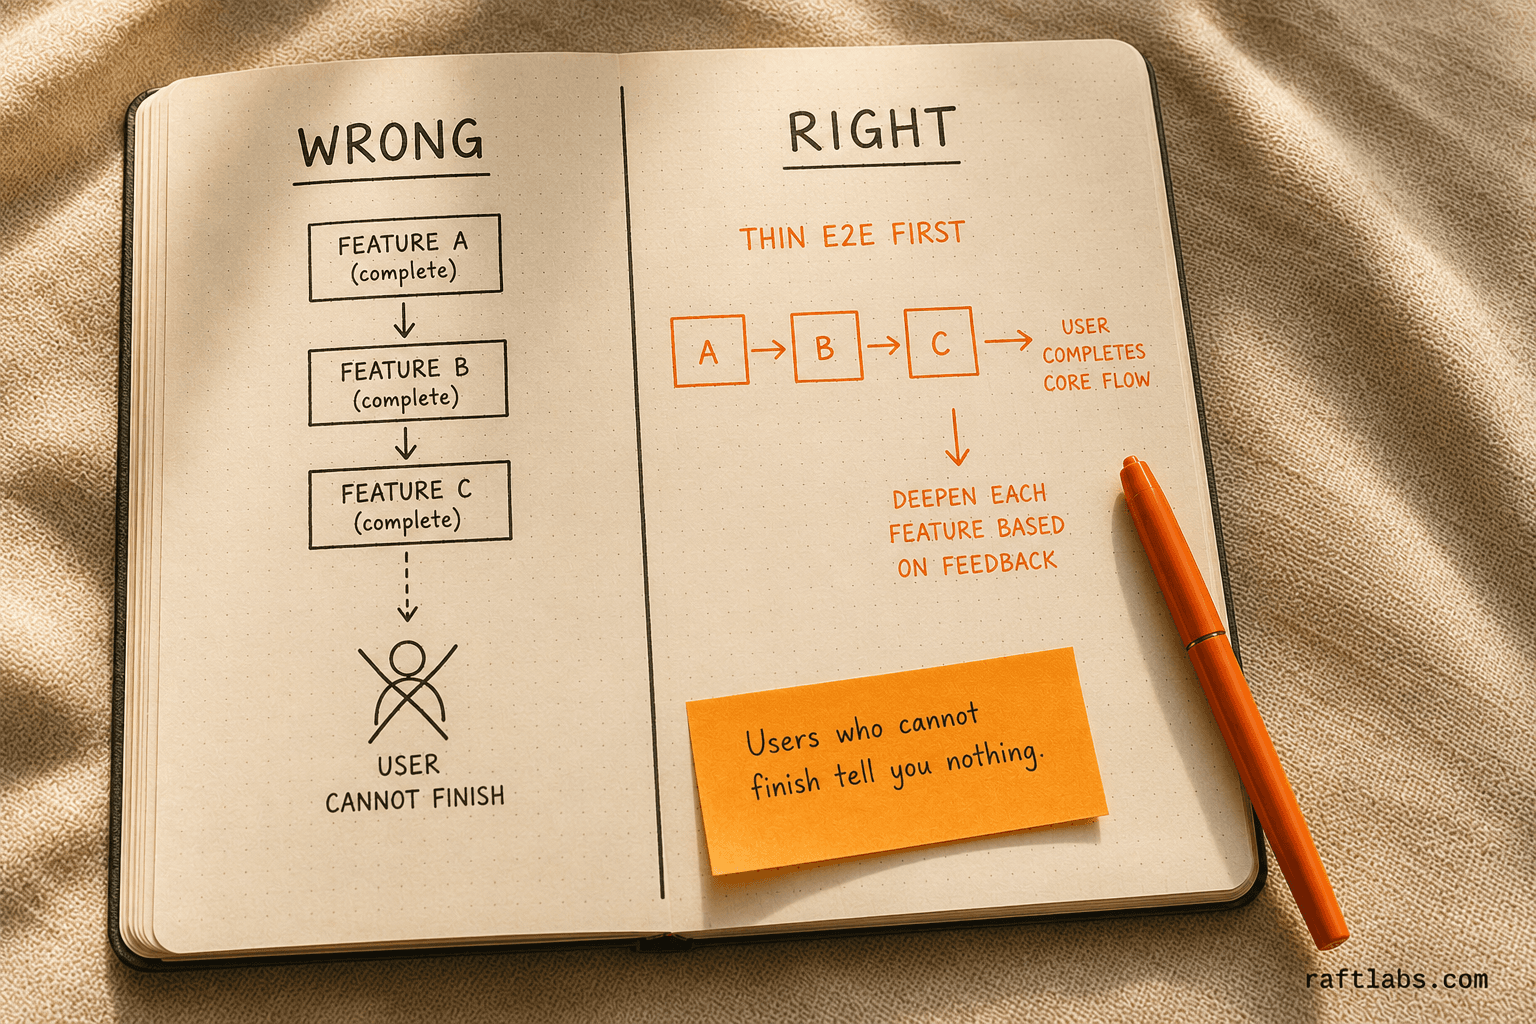 WRONG
FEATURE A
(complete)
FEATURE B
(complete)
FEATURE C
(complete)
USER
CANNOT FINISH
RIGHT
THIN E2E FIRST
A
B
C
USER
COMPLETES
CORE FLOW
DEEPEN EACH
FEATURE BASED
ON FEEDBACK
Users who cannot
finish tell you nothing.
raftlabs.com